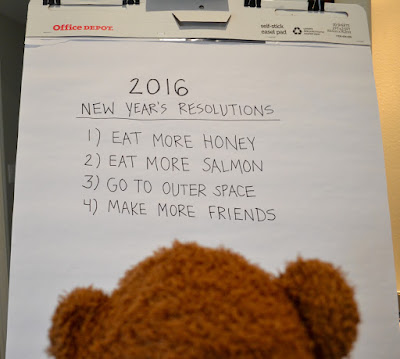 Office DEPOT
self-stick
easel pad
2016
NEW YEAR'S RESOLUTIONS
1) EAT MORE HONEY
2) EAT MORE SALMON
3) GO TO OUTER SPACE
4) MAKE MORE FRIENDS